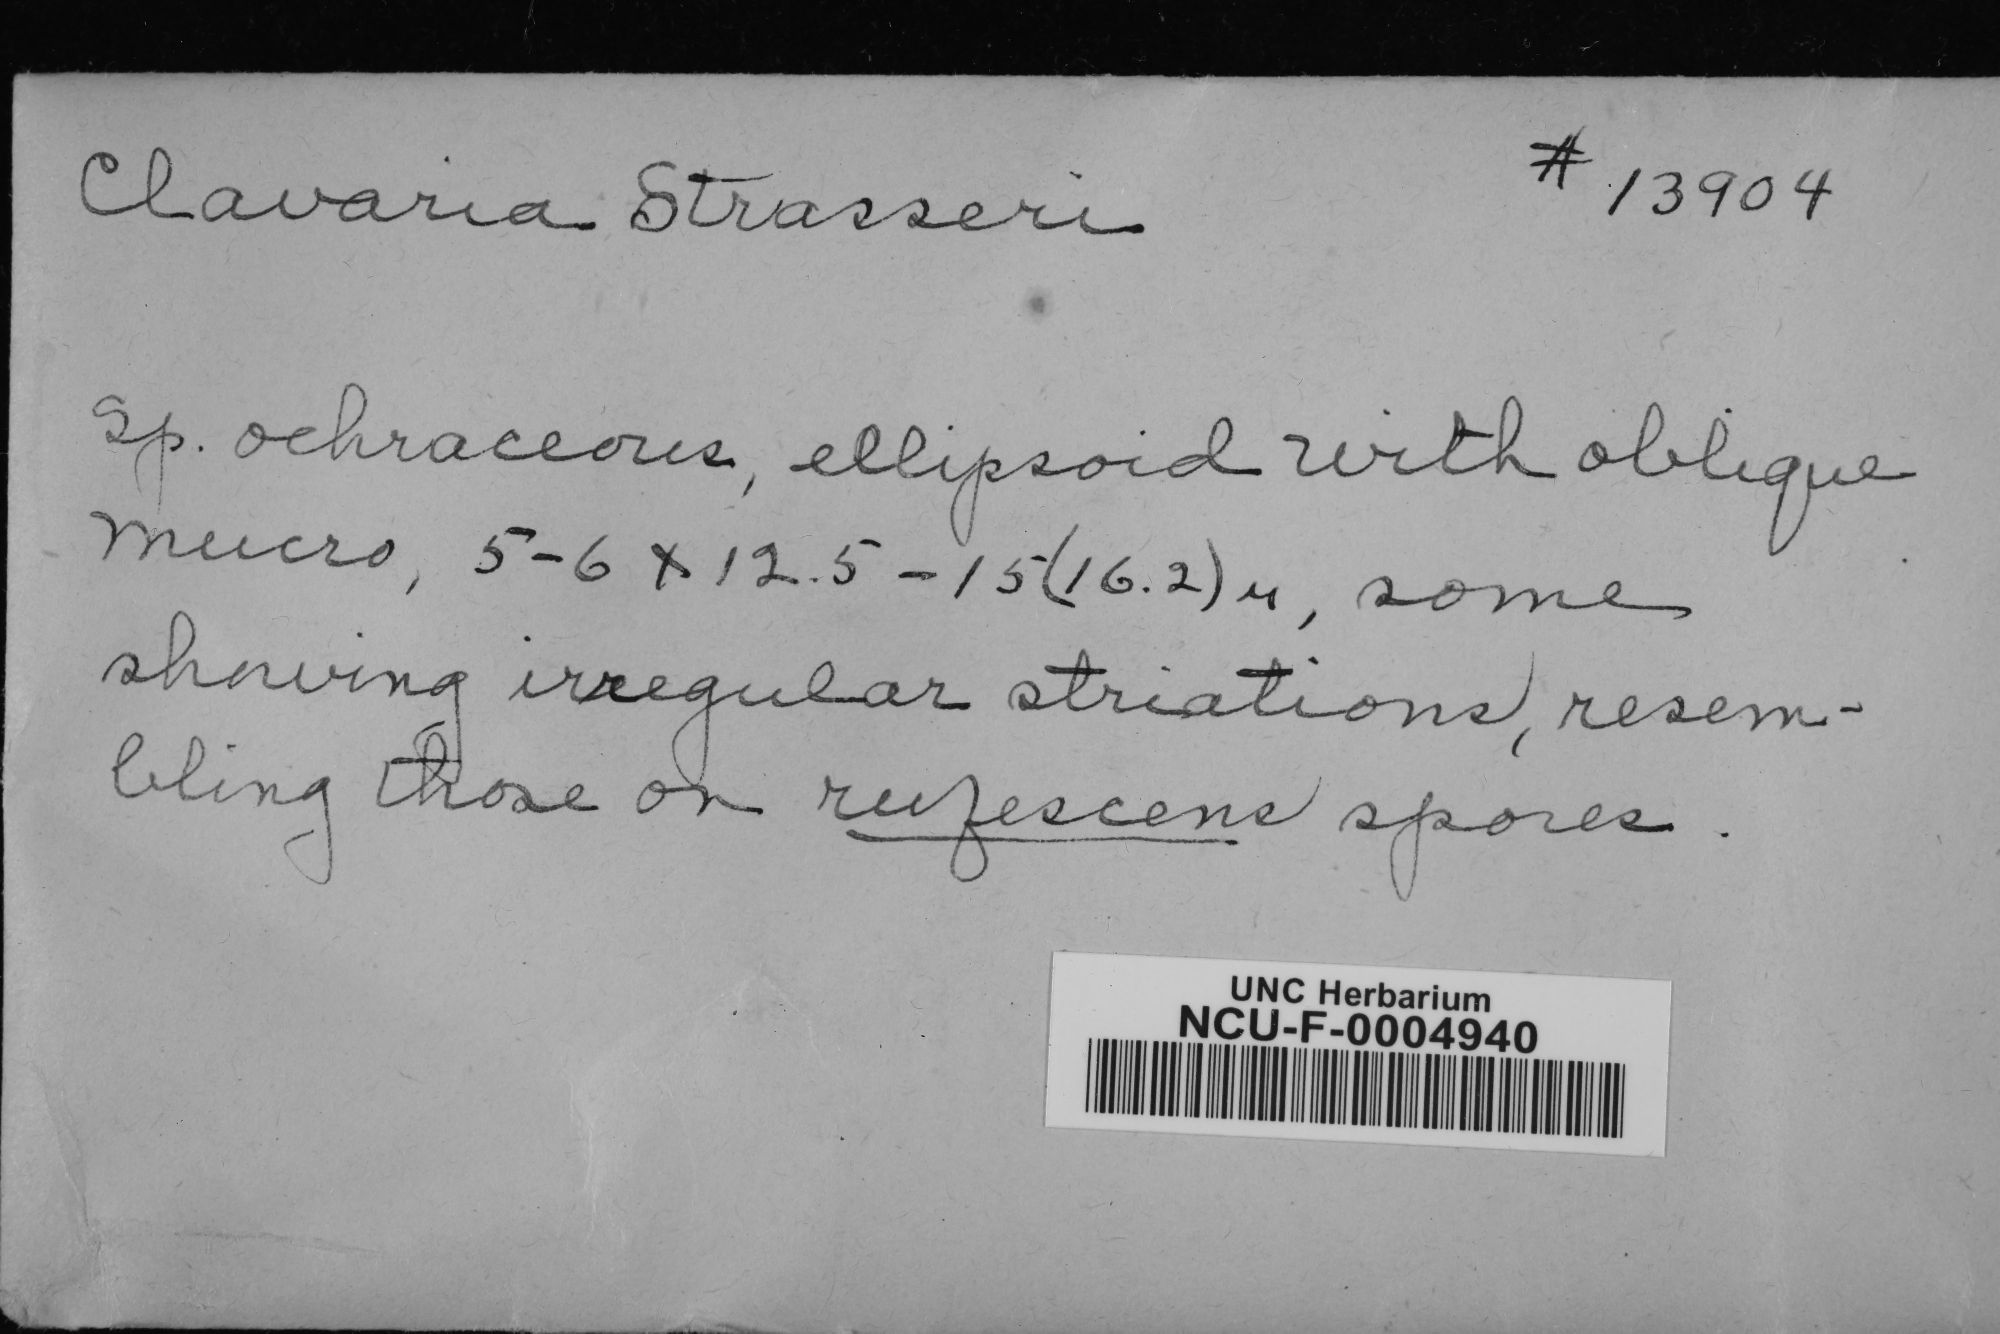 Clavaria Strasseri
# 13904
Sp. ochraceous, ellipsoid with oblique
mucro, 5-6 x 12.5-15(16.2)µ, some
showing irregular striations, resem-
bling those on rufescens spores.
UNC Herbarium
NCU-F-0004940